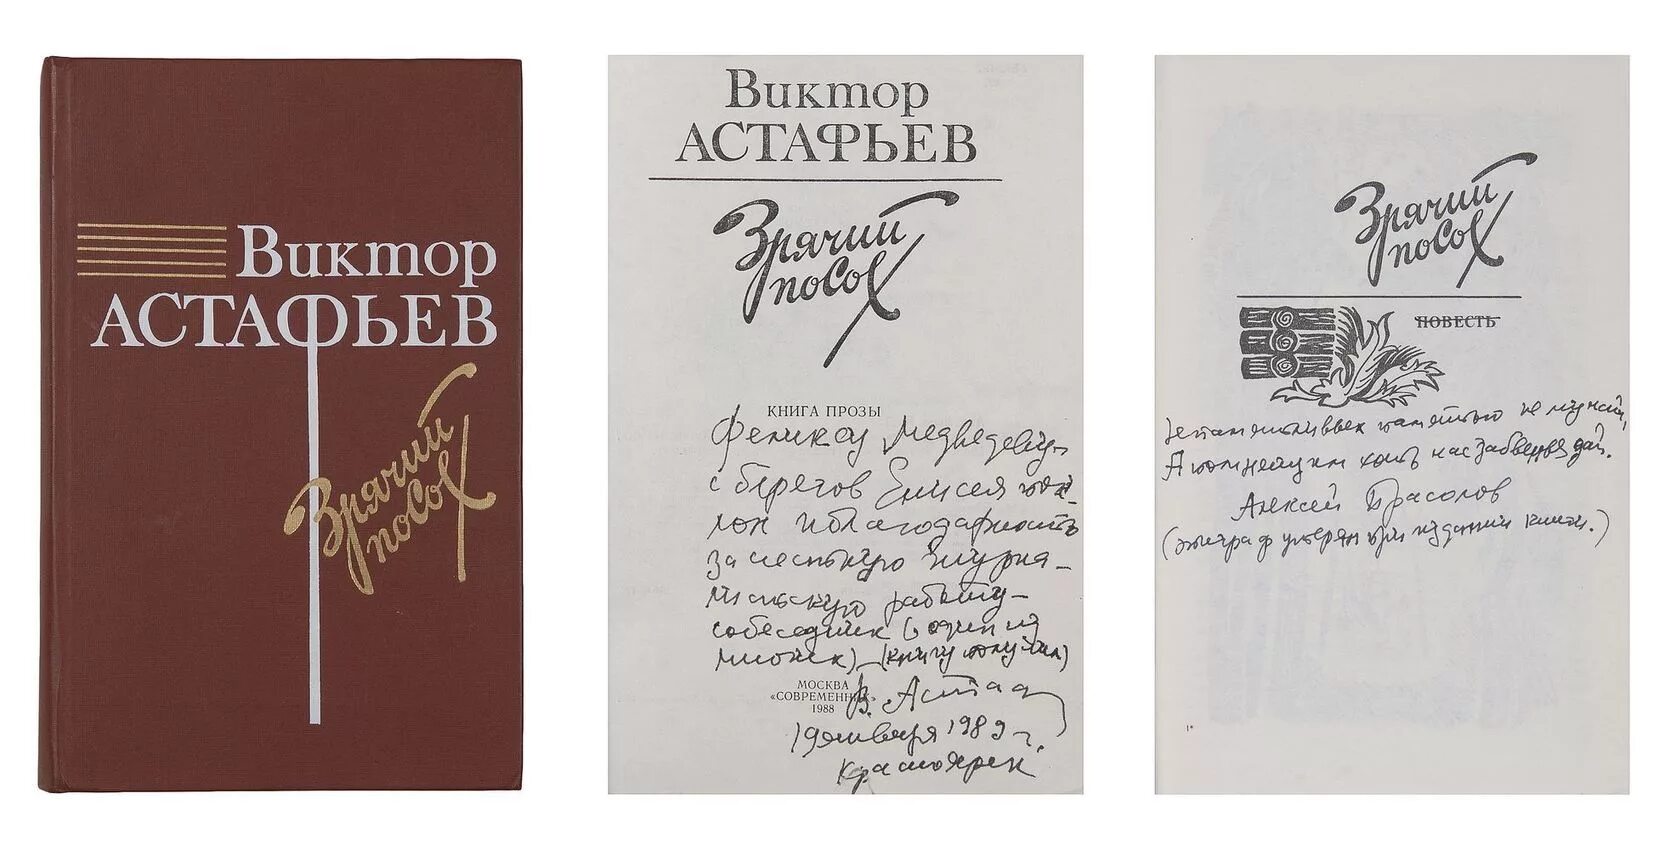 Виктор
АСТАФЬЕВ
Зрячий
посох
Виктор
АСТАФЬЕВ
Зрячий
посох
КНИГА ПРОЗЫ
Феликсу Медведеву –
с берегов Енисея
и благодарность
за честную журна-
льскую работу –
собеседник (один из
многих) (книгу получил)
МОСКВА
«СОВРЕМЕННИК»
1988
В. Астаф
19 января 1989 г.
Красноярск
Зрячий
посох
ПОВЕСТЬ
памятью не мучай,
А хоть нас забвенья дай.
Алексей Прасолов
(эпиграф утерян при издании книги.)